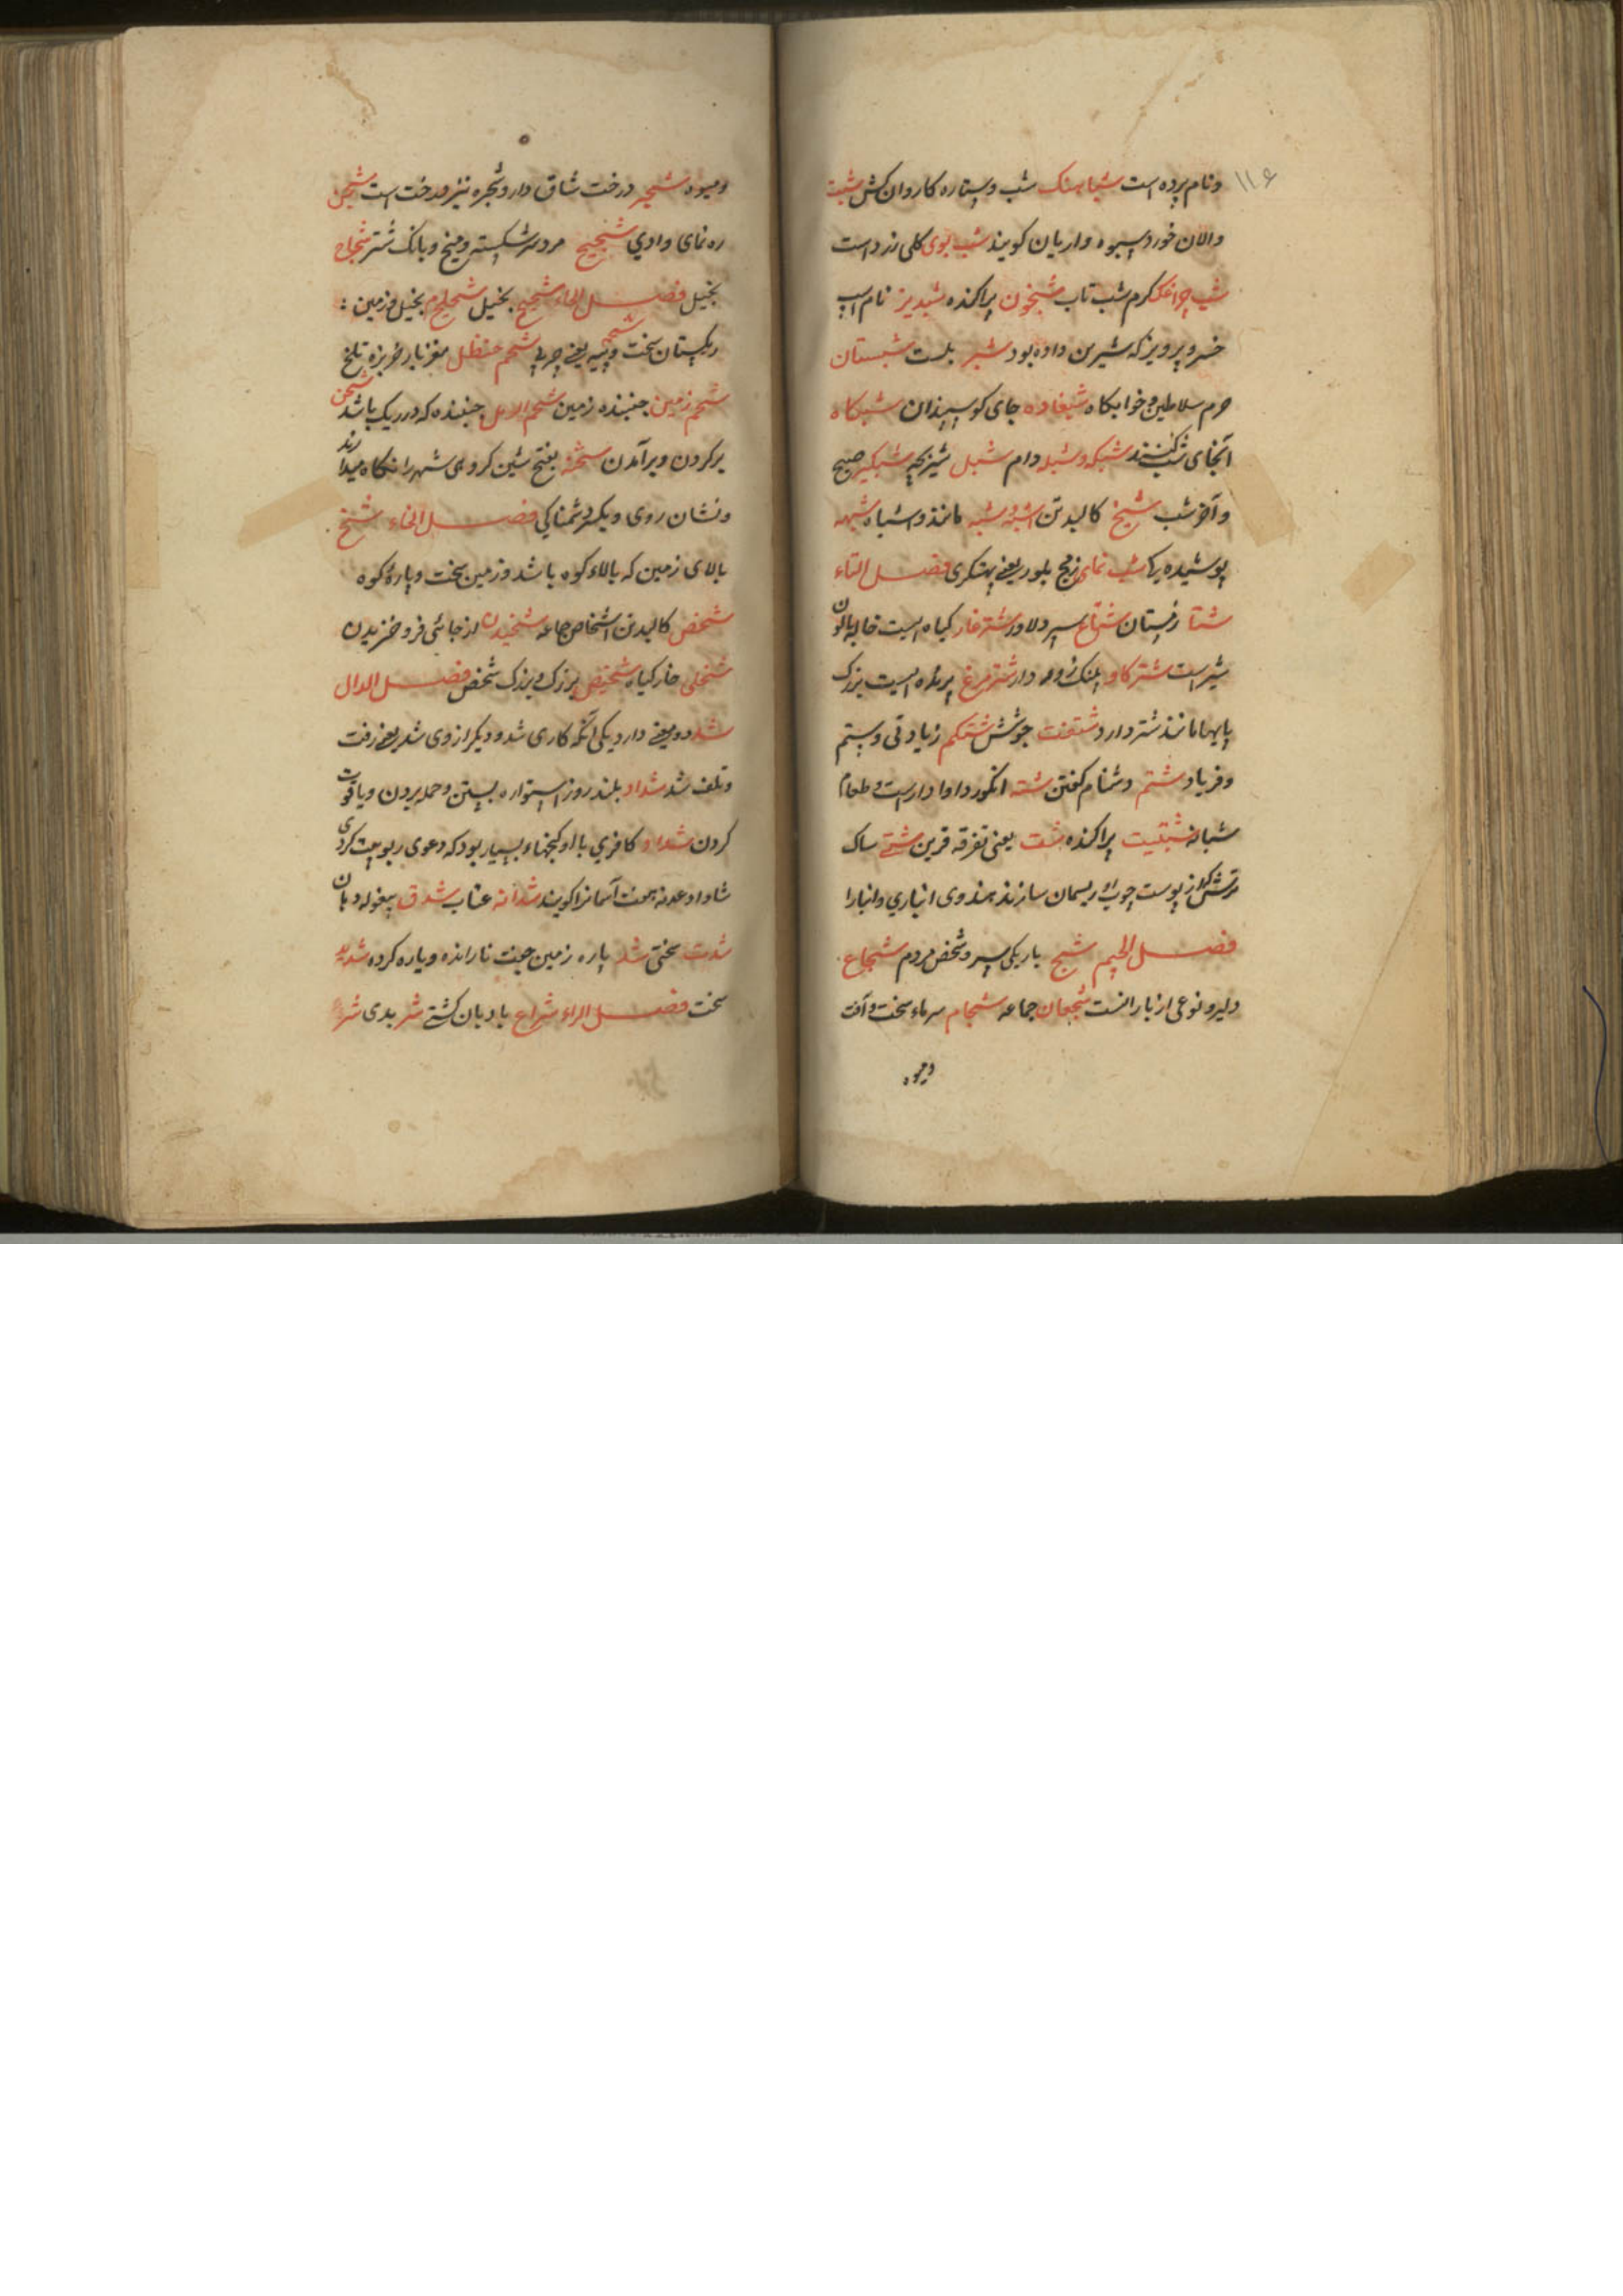 ۱۱۶
ونام پرده است شباهنک شب وستاره کاروان کش شبت
والان خورد سیوه واریان کویند شب بوی کلی زرد است
شب چراغک کرم شب تاب شبخون پراکنده شبدیز نام اسپ
خسرو پرویز که شیرین داده بود شبر بلست شبستان
حرم سلاطین و خوابکاه شبغاده جای کوسپندان شبکاه
آنجای شب کنند شبکه وشبله دام شبل شیر بچه شبکیر صبح
وآخر شب شبح کالبد تن اشبه شبه مانند واشباه شبهه
پوشیده یکا شب نمای زجج بلور یعنی بهتکری فصل التاء
شتا زمستان شتاع سپر دلاور شترغار کیاه ایست خالیه بالون
شیر است شترکاو پلنک زوه دار شترمرغ پرنده ایست بزرک
پایها مانند شتر دارد شتفت جوشش شتکم زیادتی وستم
وفریاد شتم دشنام کفتن شته انکور داوا دارست وطعام
شبانه شتیت پراکنده شت یعنی تفرقه قرین شتی ساک
ترش کلاز پوست چوب ریسمان سازند هندوی انباری وانبارا
فصل الجیم شج باریکی سر وشخص مردم شجاع
دلیر ونوعی از بارانست شجعان جماعه شجام سرماء سخت وآفت
ومیوه
ومیوه شجر درخت شاق دار وشجره نیز درخت است شجن
ره نمای وادی شجیج مرد سر شکسته ومیخ وبانک شتر شحاح
بخیل فصل الحاء شحیح بخیل شحلیح بخیل وزمین
ریکستان سخت شحم وپیه یعنی چربی شحم حنظل مغز بار خربزه تلخ
شحم زمین جنبنده زمین شحم الرمل جنبنده که در ریک باشد شحن
پر کردن وبرآمدن شحنه بفتح شین کروهی شهر را نکاه میدارند
ونشان روی ویکسر دشمنایکی فصل الخاء شخ
بالای زمین که بالاء کوه باشد وزمین سخت وپاره کوه
شخص کالبد تن اشخاص جماعه شخیدن از جائی فرو خزیدن
شخلی خار کیاه شخیص بزرک وبزرک شخص فصل الدال
شد دو معنی دارد یکی آنکه کاری شد ودیکر از وی شد یعنی رفت
وتلف شد شداد بلند روز استواره بستن وحمله بردن ویاقوت
کردن شداد کافری با او کنجهاء بسیار بود که دعوی ربوبیت کردی
شاداو عدنه بهشت آسمانرا کویند شدانه عناب شدق بیغوله دهان
شدت سختی شد پاره زمین جفت نارانده وپاره کرده شدید
سخت فصل الراء شراع بادبان کشتی شر بدی شرع